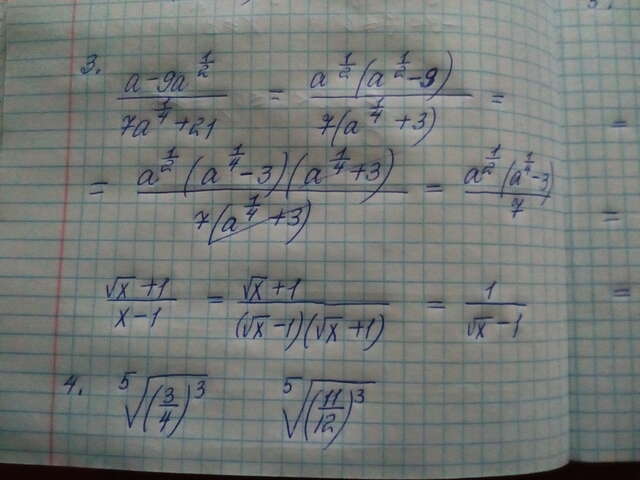 3. (a - 9a^(1/2))/(7a^(1/4) + 21) = (a^(1/2)(a^(1/2) - 9))/(7(a^(1/4) + 3)) =
= (a^(1/2)(a^(1/4) - 3)(a^(1/4) + 3))/(7(a^(1/4) + 3)) = (a^(1/2)(a^(1/4) - 3))/7
(√x + 1)/(x - 1) = (√x + 1)/((√x - 1)(√x + 1)) = 1/(√x - 1)
4. ⁵√((3/4)^3) ⁵√((11/12)^3)
=
=
=